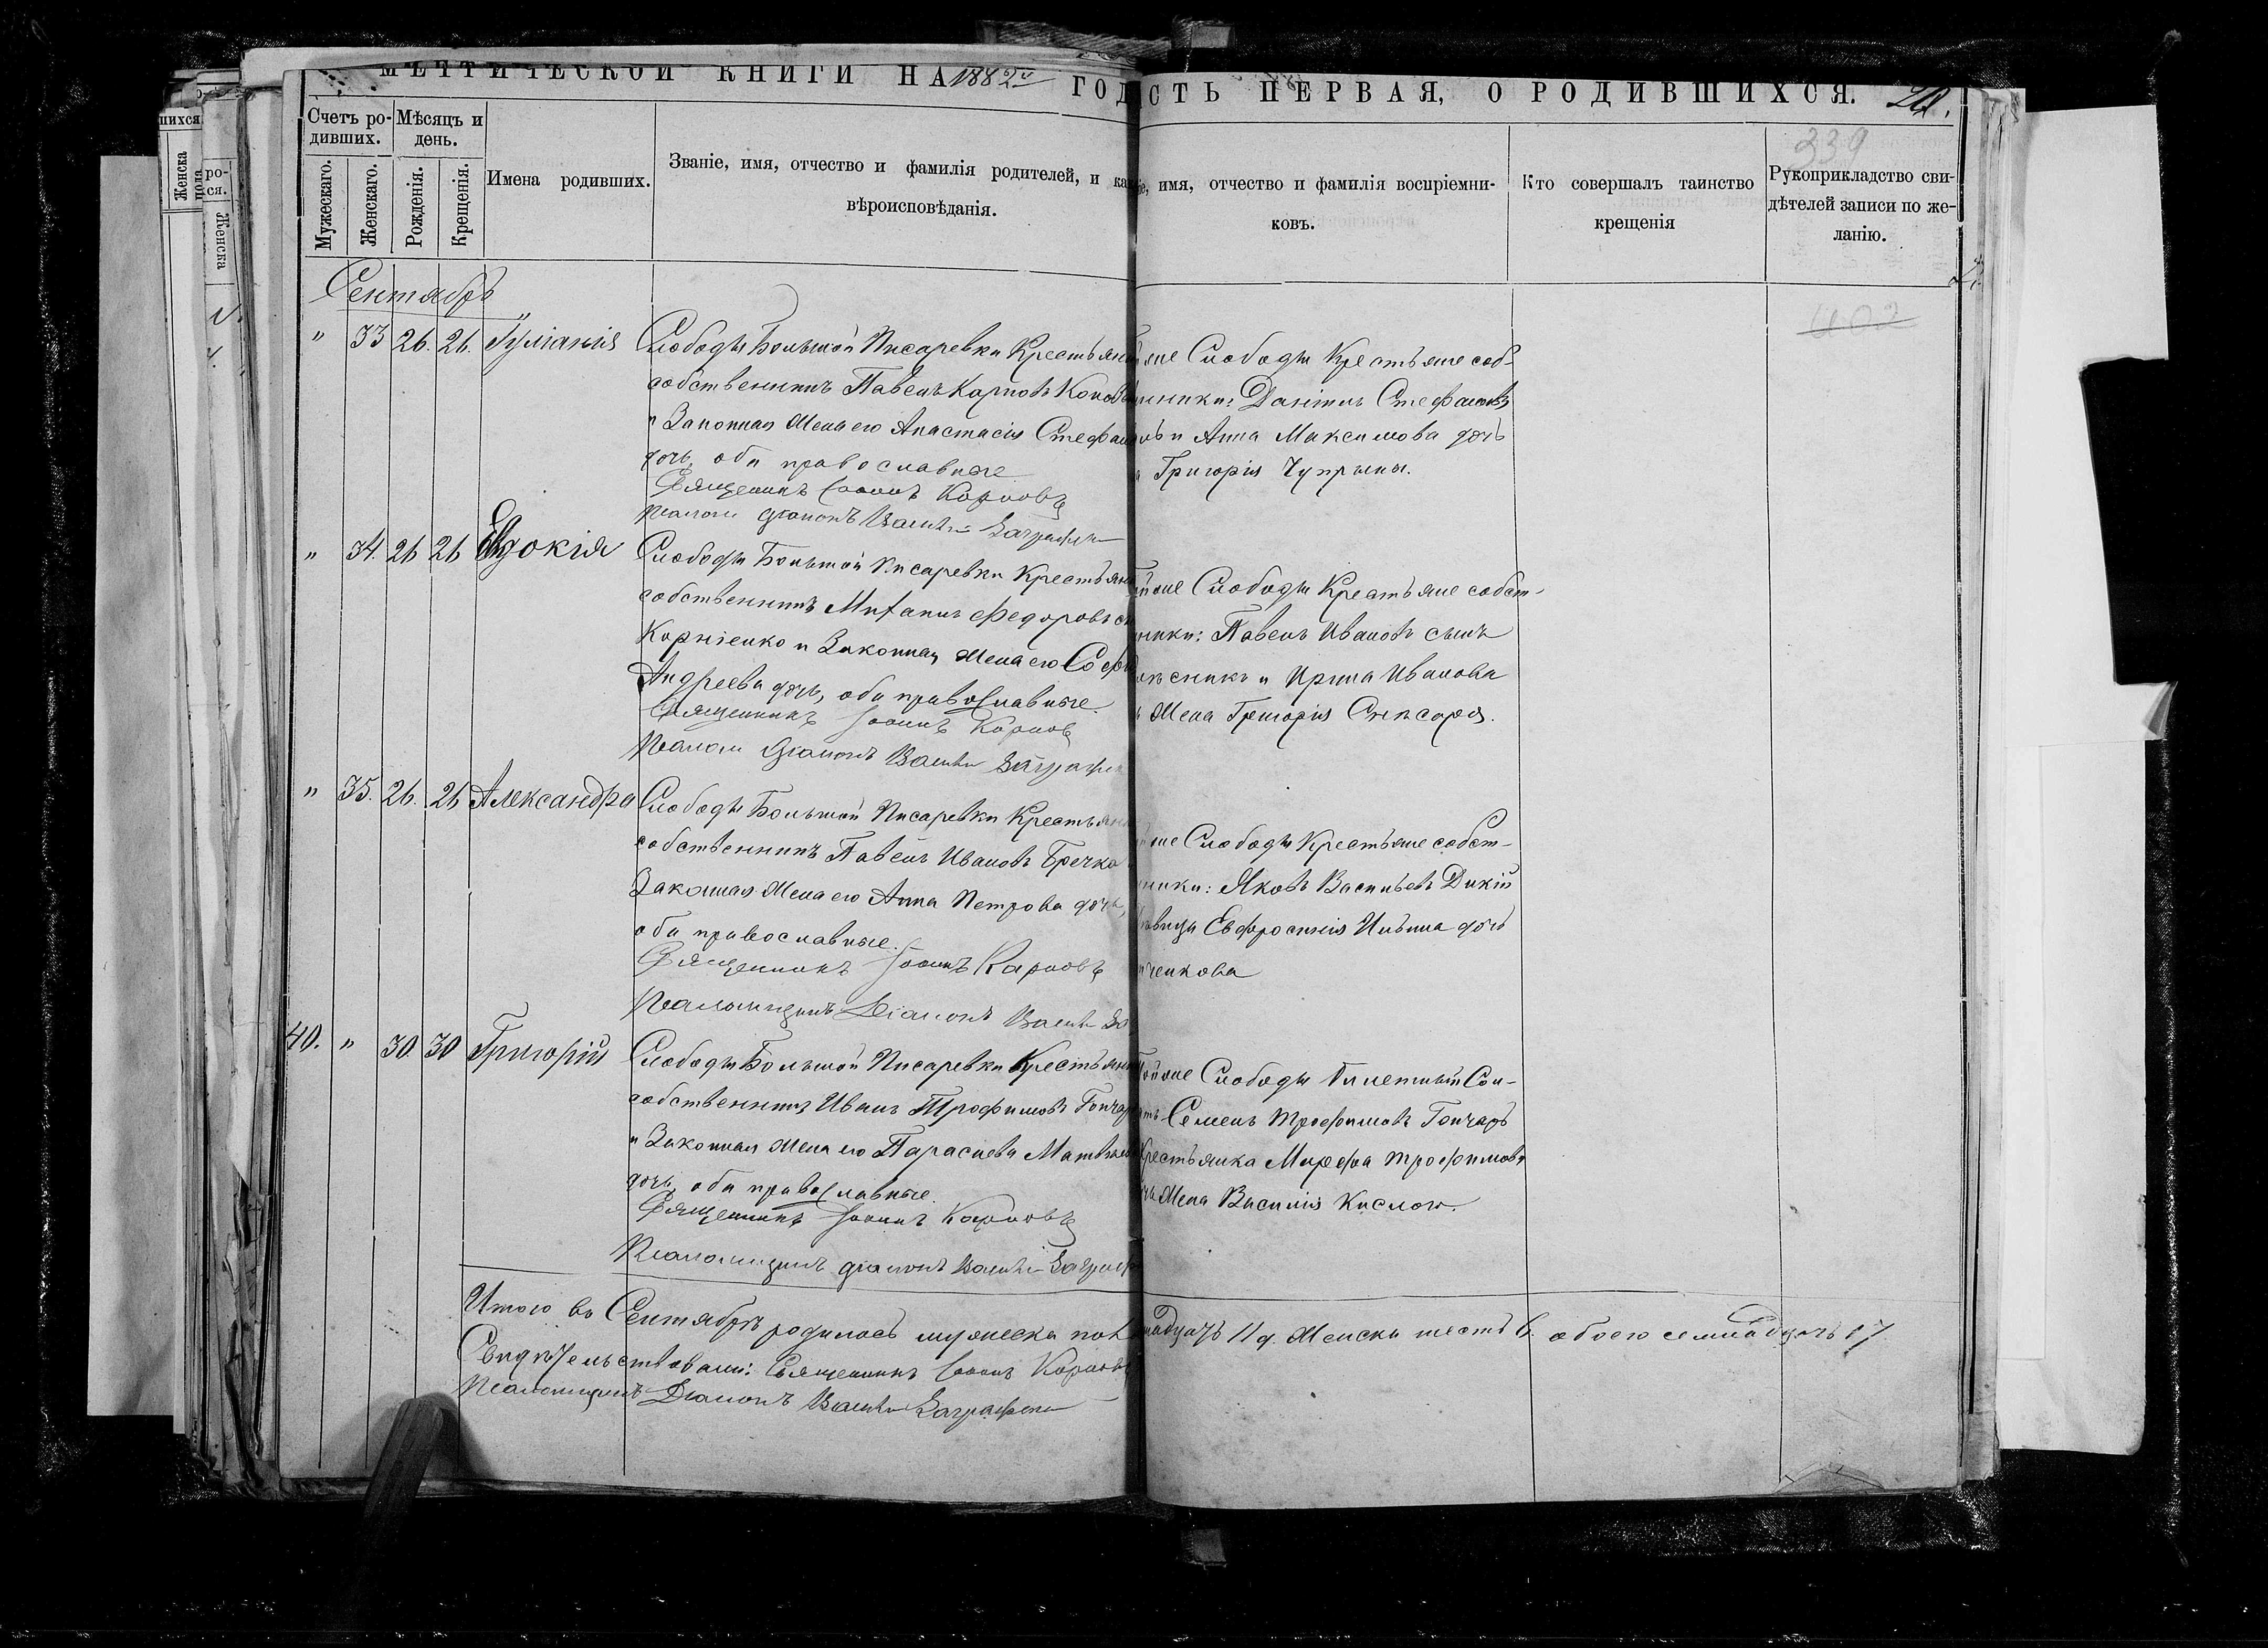 МЕТРИЧЕСКОЙ КНИГИ НА 1882й ГОД
СТЬ ПЕРВАЯ, О РОДИВШИХСЯ.
339
Счетъ ро-
дивших.
Мѣсяцъ и
день.
Мужескаго.
Женскаго.
Рожденія.
Крещенія.
Имена родивших.
Званіе, имя, отчество и фамилія родителей, и ка
вѣроисповѣданія.
імя, отчество и фамилія воспріемни-
ковъ.
Кто совершалъ таинство
крещенія
Рукоприкладство сви-
дѣтелей записи по же-
ланію.
Сентябрь
" 33 26. 26. Іуліанія
Слободы Большой Писаревки Крестьян
собственникъ Павелъ Карповъ
и Законная Жена его Анастасія Стефан
дочь, оба православные
Священникъ Іоаннъ Карповъ
Діаконъ
Слободы Крестьяне соб-
нники: Даніилъ Стефановъ
и Анна Максимова дочь
Григорія Чупрыны.
" 34. 26 26 Евдокія
Слободы Большой Писаревки Крестьян
собственникъ Михаилъ Федоровъ
Корніенко и Законная Жена его Соф
Андреева дочь, оба православные.
Священникъ Іоаннъ Карповъ
Діаконъ
Слободы Крестьяне собст-
ники: Павелъ Ивановъ сынъ
и Ирина Иванова
Жена Григорія Слѣсаря.
" 35. 26. 26 Александра
Слободы Большой Писаревки Крестьян
собственникъ Павелъ Ивановъ Гречка
Законная Жена его Анна Петрова дочь,
оба православные.
Священникъ Іоаннъ Карповъ
Псаломщикъ Діаконъ
Слободы Крестьяне собст-
ники: Яковъ Васильевъ Дикій
вица Евфросинія Ильина дочь
ченкова
40. " 30. 30 Григорій
Слободы Большой Писаревки Крестьян
собственникъ Иванъ Трофимовъ Гончар
и Законная Жена его Параскева Матвѣе
дочь, оба православные.
Священникъ Іоаннъ Карповъ
Псаломщикъ Діаконъ
Слободы Билетный Сол-
Семенъ Трофимовъ Гончаръ
Крестьянка Марфа Трофимова
Жена Василія Кислого.
Итого въ Сентябрѣ родилось мужеска пол
надцать 11 д. Женска шесть 6. обоего семнадцать 17
Свидѣтельствовали: Священникъ Іоаннъ Карповъ
Псаломщикъ Діаконъ